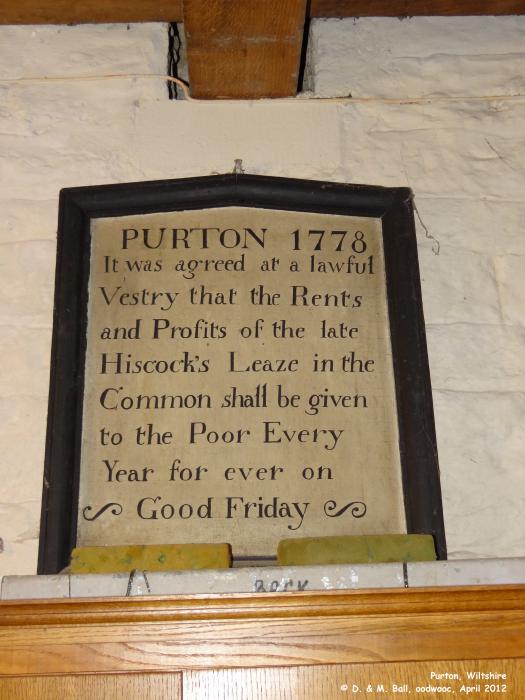 PURTON 1778
It was agreed at a lawful
Vestry that the Rents
and Profits of the late
Hiscock's Leaze in the
Common shall be given
to the Poor Every
Year for ever on
Good Friday
Purton, Wiltshire
© D. & M. Ball, oodwooc, April 2012